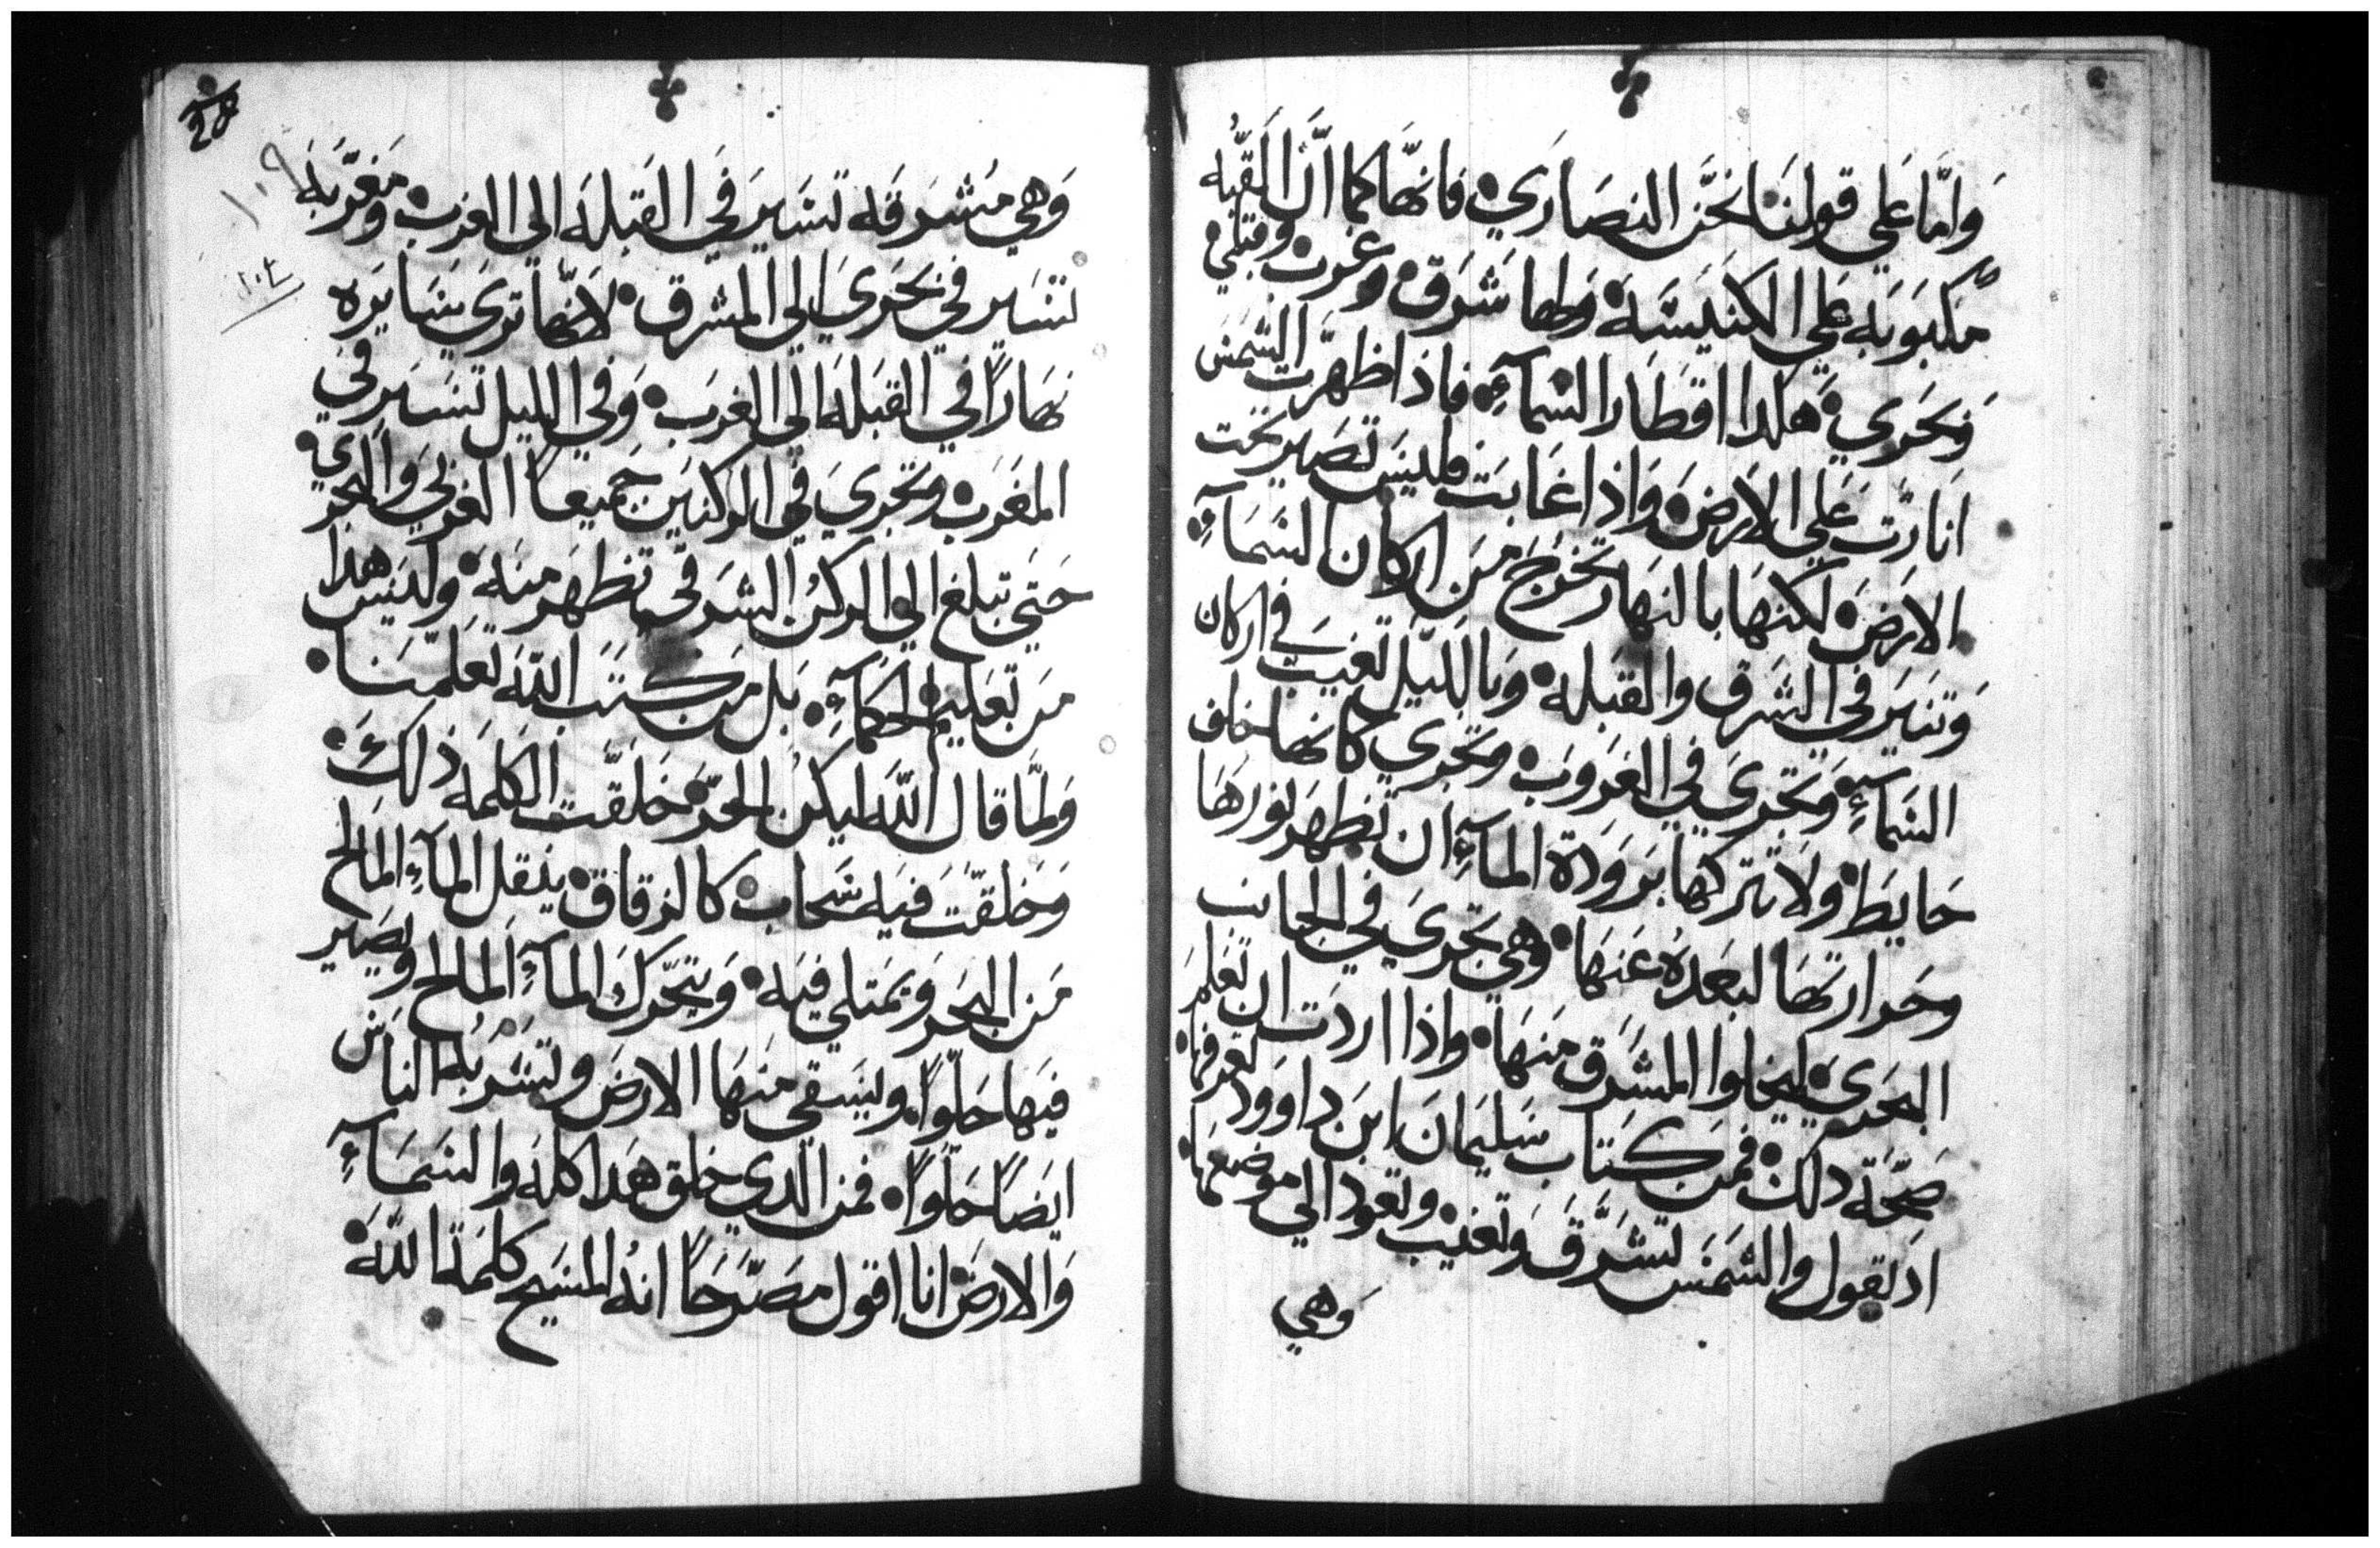 وَامَّا عَلي قولنَا نحَن النصَارَي فانهَّا كما اَنَّ القبُّه
مَكبوَبَه عَلي الكنيسَه وَلها شَرَق وغرب وقبلي
وَبحَري هكدا اقطَار السَمآءِ فاذا ظهَرت الشمسَ
انارَت عَلي الارَض وَاذا غَابَت فليسَ تصَير تحت
الارَض لكنهَا بالنهَار تخرج مَن اركان السَمَآءِ
وَتنيَر في الشَرق والقبَله وَبالليَل تغيَبَ في اركان
السَمآءِ وَتجَريَ في الغرَوبَ وتجَري كانها خلف
حَايَط ولا تتركها بَروَدة المآءِ ان تظهَر نورهَا
وحَرارتهَا لبعَدهُ عَنهَا وهي تجَريَ في الجانب
البحَريَ ليخلوا المشَرق مَنهَا واذا اردَت ان تعَلم
صَحَّة دلك فمَن كتَاب سَليمَان ابنَ داوود تعرفها
اذ يقول والشمَسَ تشَرَق وتغيَب وتعود الي موضعهَا
وَهي
28
١٠٩
١٠٢
وَهي مَشرَقه تسَيرَ في القبَله الي الغرب ومَغرَّبه
تسَير في بحَريَ الي المشرق لانهَّا ترَيَ سَايرَه
نهَارًا في القبَله الي الغرَب وَفي الليل تسَيَر في
المغرَب وتجَريَ في الركنيَن جَميعاً الغربي وَالبحري
حَتي تبلغ الي الركن الشرَقي تظهَر منه وليسَ هدا
مَن تعَليم الحكمآءِ بَل مَن كتَب اللّه تعَلمَنا
وَلمَّا قال اللّه ليكن الحَرّ خَلقَت الكلمَه ذلكَ
وَخلقَت فيَه سَحاب كالزقاق ينقل المآءِ المَالح
مَن البحَر وَيمَتلي فيَه وَيتحَرك المآءِ المالح ويصَير
فيَها حَلواً وليَسقي مَنهَا الارضَ وتشَربُه الناسَ
ايضَاً حَلواً فمن الدي خلق هَدا كله والسَمَآءِ
وَالارضَ انا اقول مَصَرَحَاً انهُ المسَيح كلمَة اللّه